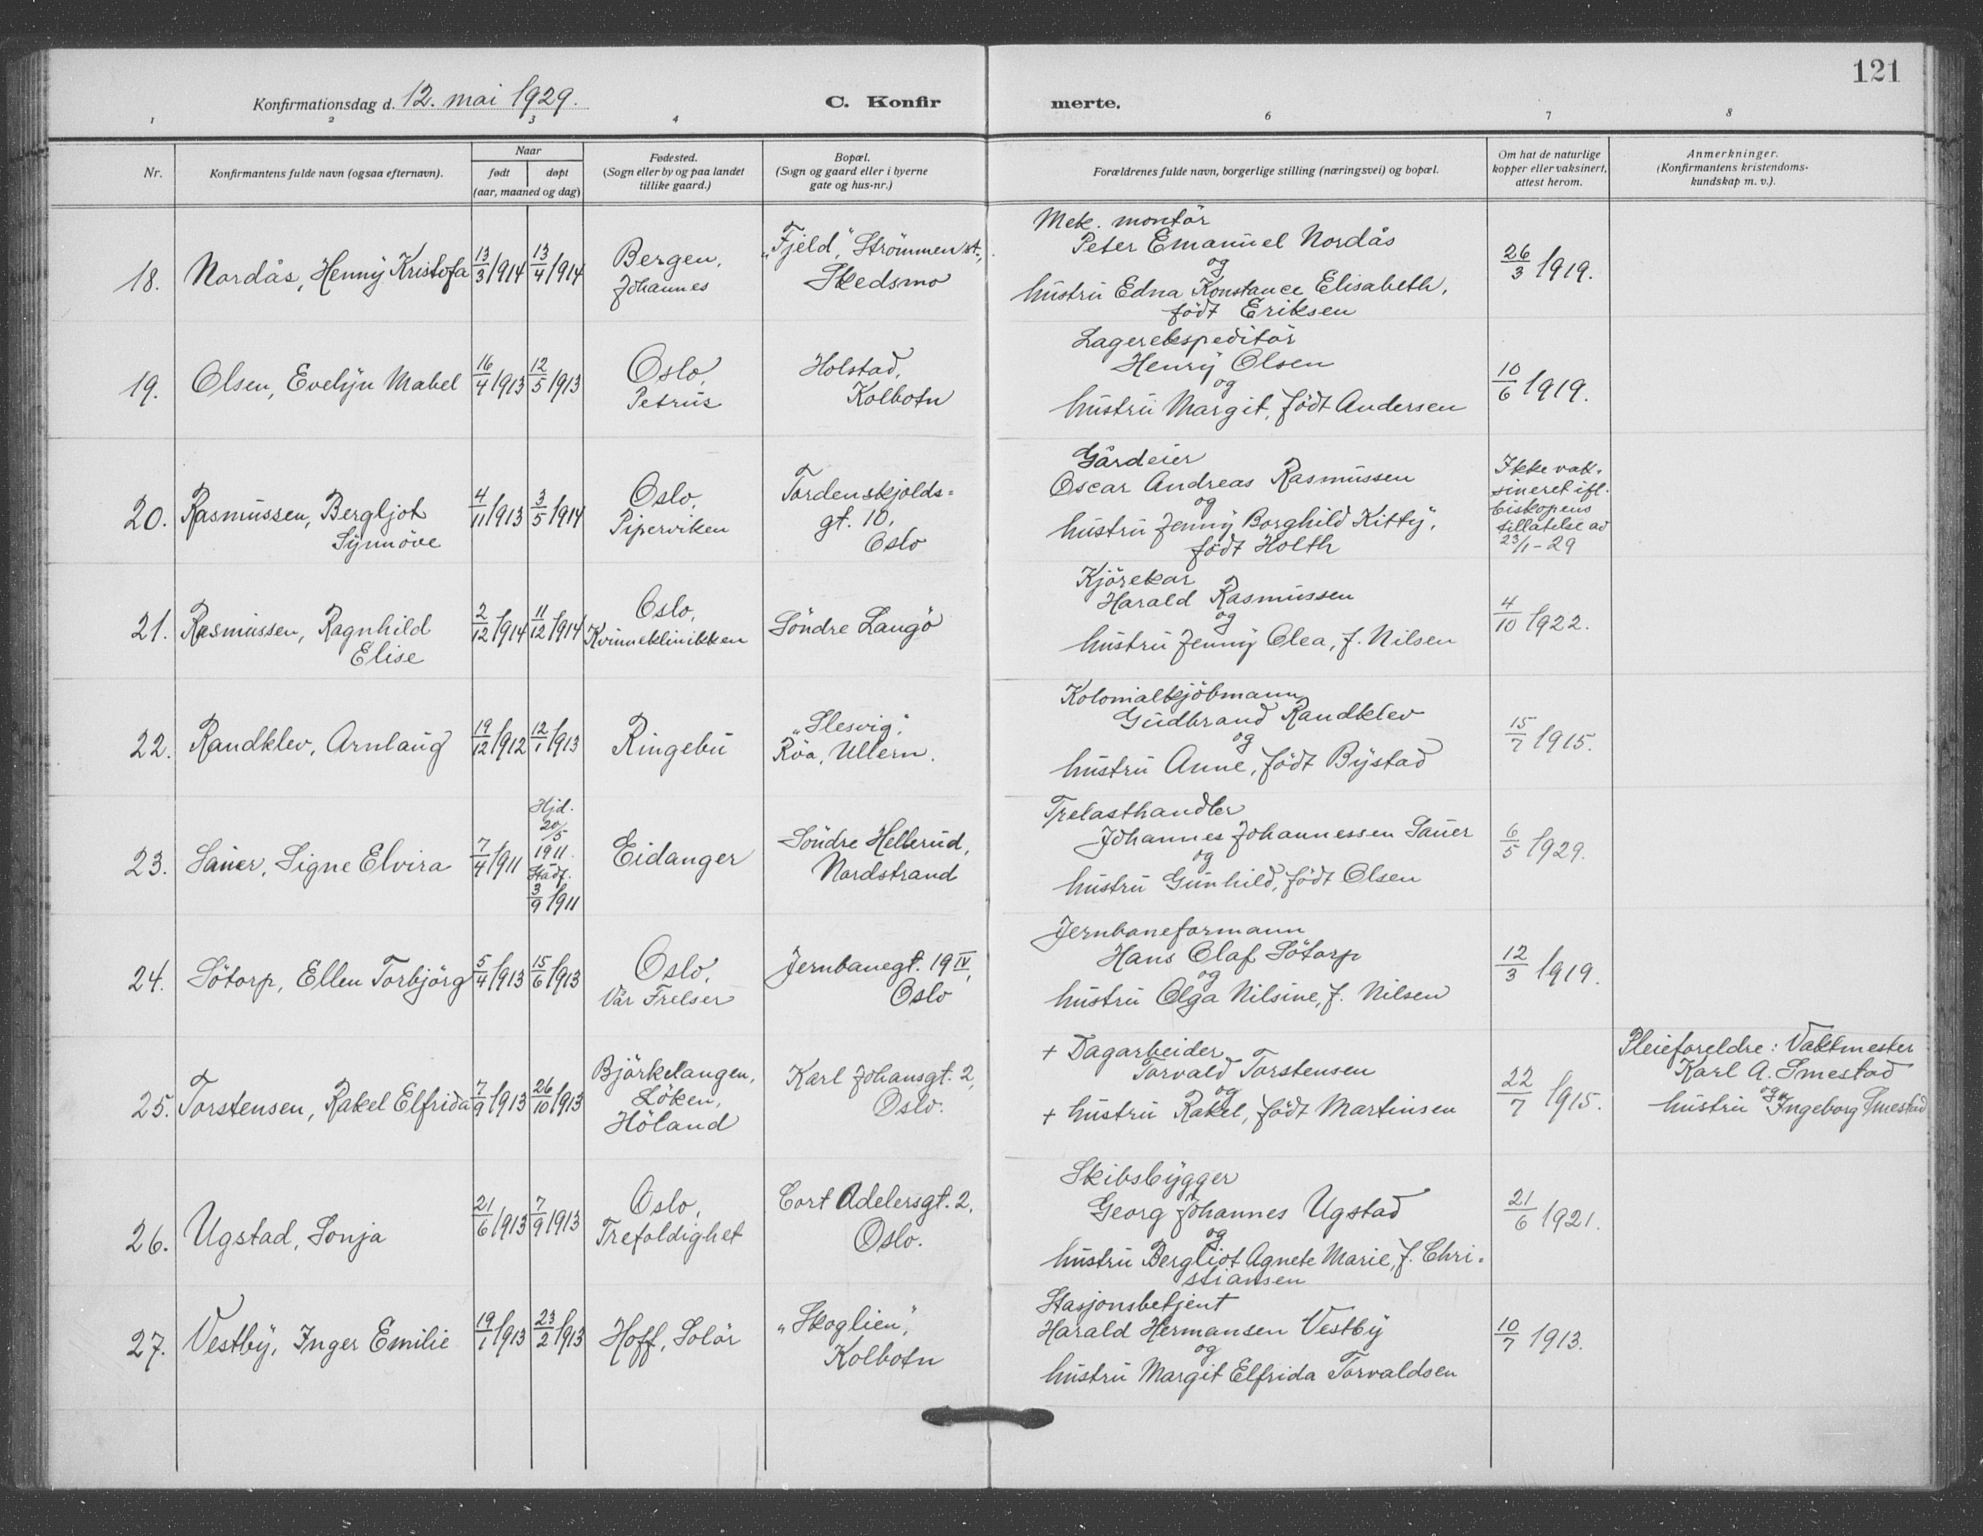 121
Konfirmationsdag d. 12. mai 1929.
C. Konfirmerte.
1 2 3 4 6 7 8
Nr.
Konfirmantens fulde navn (ogsaa efternavn).
Naar
født
døpt
(aar, maaned og dag)
Fødested.
(Sogn eller by og paa landet
tillike gaard.)
Bopæl.
(Sogn og gaard eller i byerne
gate og hus-nr.)
Forældrenes fulde navn, borgerlige stilling (næringsvei) og bopæl.
Om hat de naturlige
kopper eller vaksinert,
attest herom.
Anmerkninger.
(Konfirmantens kristendoms-
kundskap m. v.).
18. Nordås, Henny Kristofa
13/3 1914
13/4 1914
Bergen,
Johannes
„Fjeld", Strömmen st.,
Skedsmo
Mek. montör
Peter Emanuel Nordås
og
hustru Edna Konstance Elisabeth,
födt Eriksen
26/3 1919.
19. Olsen, Evelyn Mabel
16/4 1913
12/5 1913
Oslo,
Petrus
Holstad,
Kolbotn
Lagerekspeditör
Henry Olsen
og
hustru Margit, födt Andersen
10/6 1919.
20. Rasmussen, Bergljot
Synnöve
4/11 1913
3/5 1914
Oslo,
Piperviken
Tordenskjolds=
gt. 10,
Oslo
Gårdeier
Oscar Andreas Rasmussen
og
hustru Jenny Borghild Kitty,
födt Holth
Ikke vak-
sineret ifl.
biskopens
tillatelse av
23/1 - 29
21. Rasmussen, Ragnhild
Elise
2/12 1914
11/12 1914
Oslo,
Kvinneklinikken
Söndre Langö
Kjörekar
Harald Rasmussen
og
hustru Jenny Olea, f. Nilsen
4/10 1922.
22. Randklev, Arnlaug
19/12 1912
12/1 1913
Ringebu
„Slesvig",
Röa, Ullern.
Kolonialkjöbmann
Gudbrand Randklev
og
hustru Anne, födt Bystad
15/7 1915.
23. Sauer, Signe Elvira
7/4 1911
Hjd.
20/5
1911
Stadf.
3/9 1911
Eidanger
Söndre Hellerud,
Nordstrand
Trelasthandler
Johannes Johannessen Sauer
og
hustru Gunhild, födt Olsen
6/5 1929.
24. Sötorp, Ellen Torbjörg
5/4 1913
15/6 1913
Oslo,
Vår Frelser
Jernbanegt. 19 IV,
Oslo
Jernbaneformann
Hans Olaf Sötorp
og
hustru Olga Nilsine, f. Nilsen
12/3 1919.
25. Torstensen, Rakel Elfrida
7/9 1913
26/10 1913
Björkelangen,
Löken,
Höland
Karl Johansgt. 2,
Oslo.
+ Dagarbeider
Torvald Torstensen
og
+ hustru Rakel, födt Martinsen
22/7 1915.
Pleieforeldre: Vaktmester
Karl A. Smestad
og
hustru Ingeborg Smestad
26. Ugstad, Sonja
21/6 1913
7/9 1913
Oslo,
Trefoldighet
Cort Adelersgt. 2,
Oslo.
Skibsbygger
Georg Johannes Ugstad
og
hustru Bergliot Agnete Marie, f. Chri-
stiansen
21/6 1921.
27. Vestby, Inger Emilie
19/1 1913
23/2 1913
Hoff, Solör
„Skoglien",
Kolbotn
Stasjonsbetjent
Harald Hermansen Vestby
og
hustru Margit Elfrida Torvaldsen
10/7 1913.